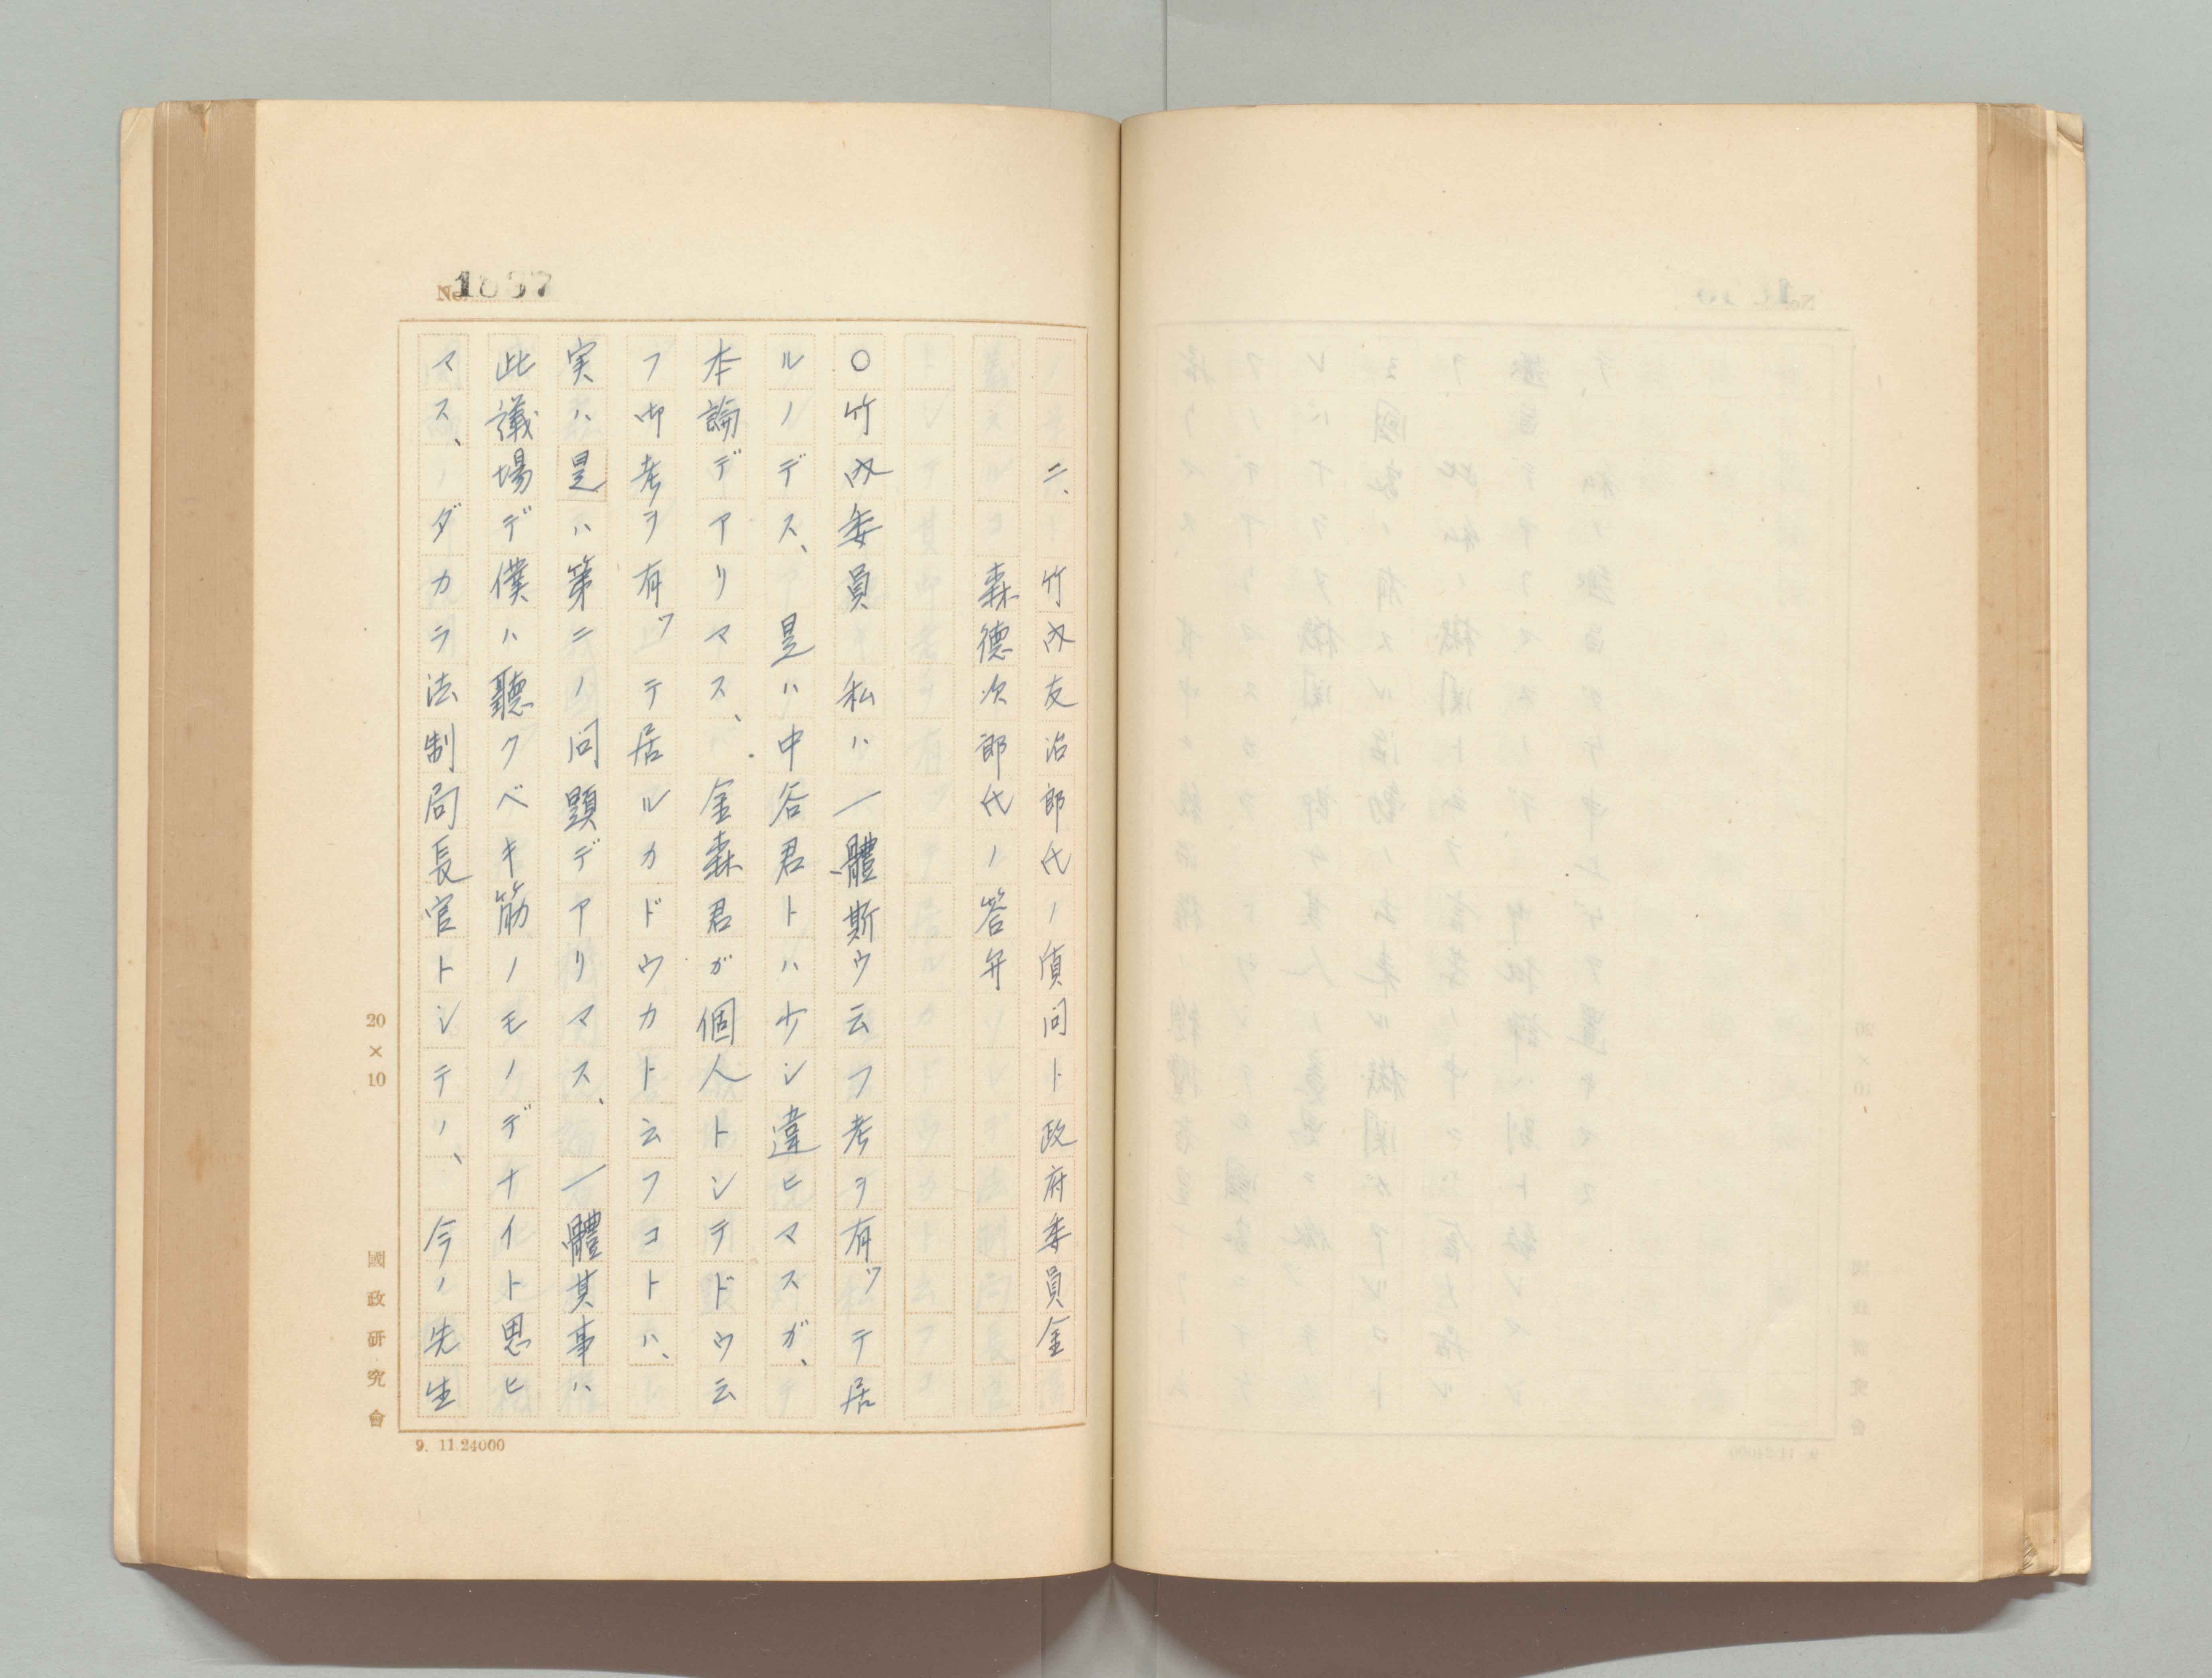 二、竹内友治郎代ノ質問ト政府委員金
森德次郎代ノ答弁
○竹内委員 私ハ一體斯ウ云フ考ヲ有ッテ居
ルノデス、是ハ中谷君トハ少シ違ヒマスガ、
本論デアリマス、金森君ガ個人トシテドウ云
フ御考ヲ有ッテ居ルカドウカト云フコトハ、
実ハ是ハ第二ノ問題デアリマス、一體其事ハ
此議場デ僕ハ聽クベキ筋ノモノデナイト思ヒ
マス、ダカラ法制局長官トシテノ、今ノ先生
No.
20×10
國政研究會
9. 11.24000